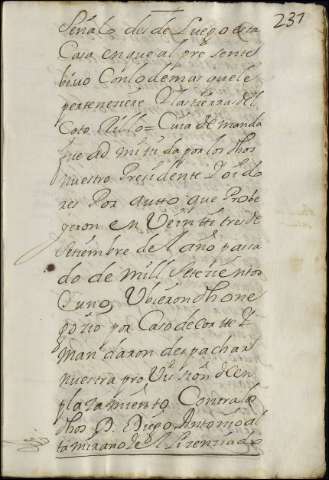 237
Señalo desde Luego esta
Casa en que al pre sente
bivo Con lo demas que le
perteneciere Y la tierra del
Coto
Cuia demanda
fue ad mitida por los dhos
nuestro Presidente Y oido
res Por auto que Probe
yeron en Veinti tres de
Setiembre de el año pasa
do de mill Setecientos
Y uno, Ubieron dho ne
gocio por Caso de Corte Y
Mandaron despachar
nuestra pro Vision de en
plaçamiento Contra los
dhos D. Diego Antonio al
tamirano